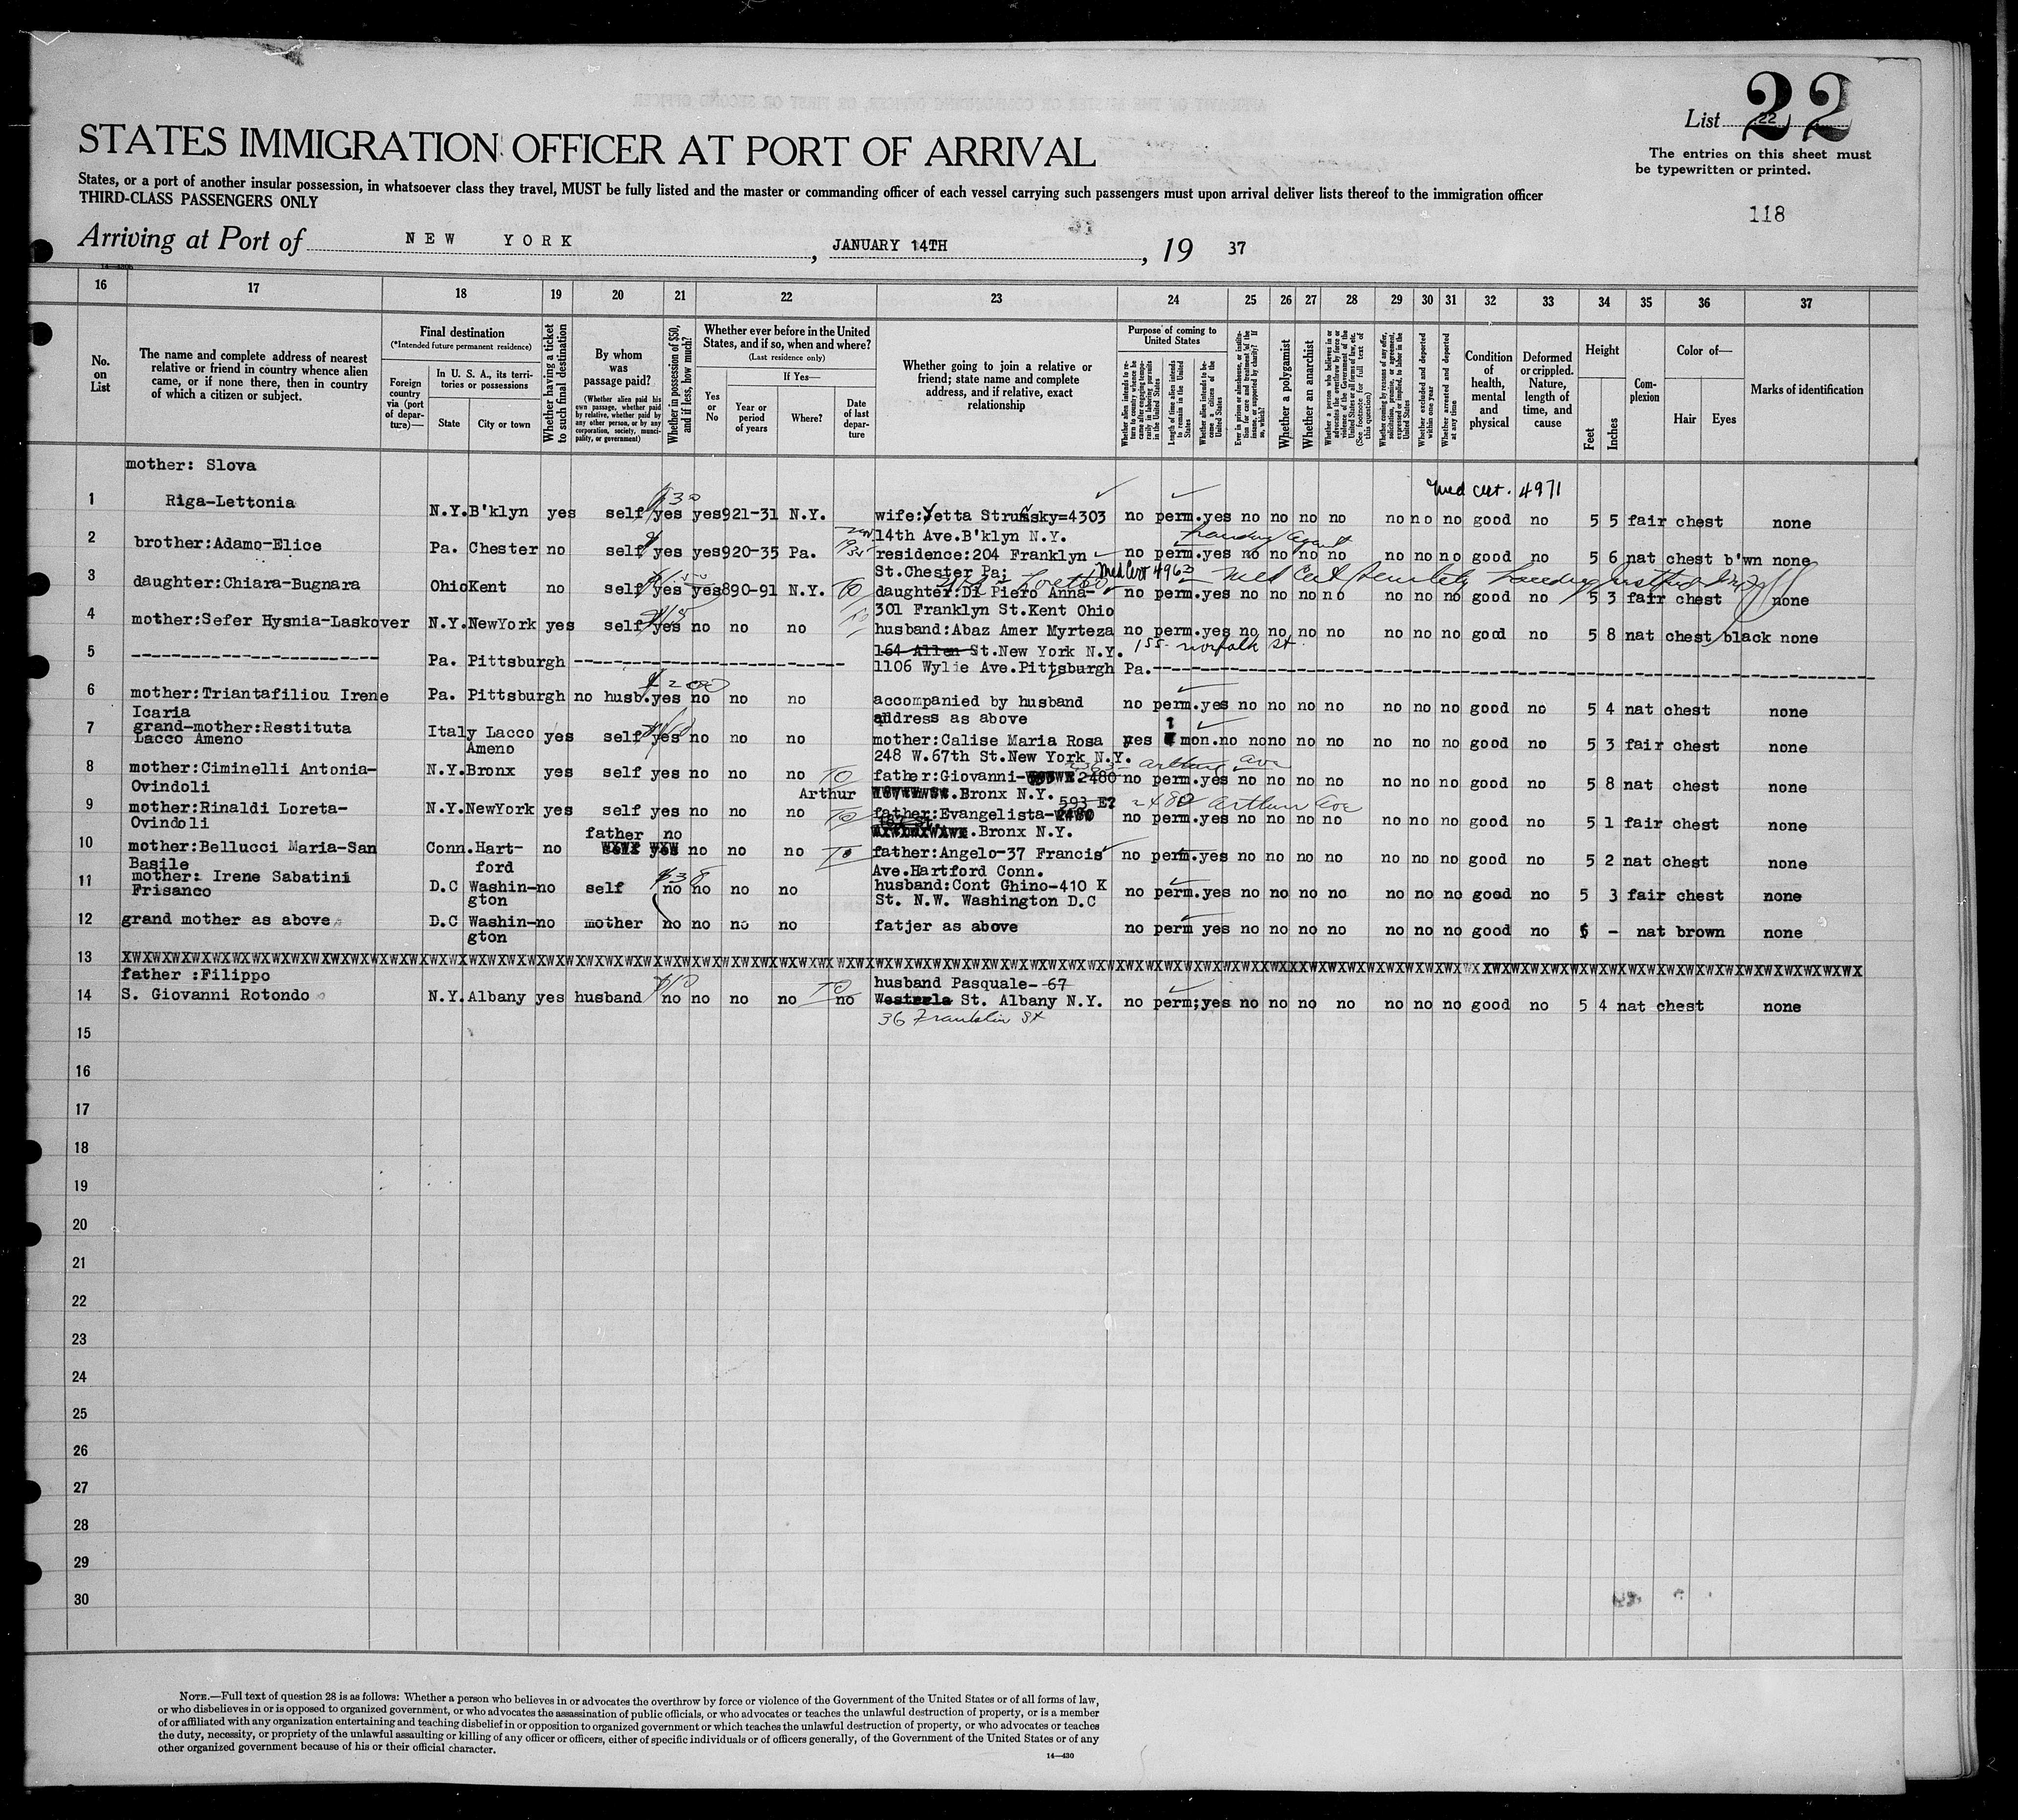 List 22
22
The entries on this sheet must
be typewritten or printed.
118
STATES IMMIGRATION OFFICER AT PORT OF ARRIVAL
States, or a port of another insular possession, in whatsoever class they travel, MUST be fully listed and the master or commanding officer of each vessel carrying such passengers must upon arrival deliver lists thereof to the immigration officer
THIRD-CLASS PASSENGERS ONLY
Arriving at Port of NEW YORK, JANUARY 14TH, 19 37
16 17 18 19 20 21 22 23 24 25 26 27 28 29 30 31 32 33 34 35 36 37
No. on List
The name and complete address of nearest
relative or friend in country whence alien
came, or if none there, then in country
of which a citizen or subject.
Final destination
(*Intended future permanent residence)
Foreign country via (port of departure)—
In U. S. A., its territories or possessions
State
City or town
Whether having a ticket to such final destination
By whom was passage paid?
(Whether alien paid his own passage, whether paid by relative, whether paid by any other person, or by any corporation, society, municipality, or government)
Whether in possession of $50, and if less, how much?
Whether ever before in the United States, and if so, when and where?
(Last residence only)
Yes or No
If Yes—
Year or period of years
Where?
Date of last departure
Whether going to join a relative or
friend; state name and complete
address, and if relative, exact
relationship
Purpose of coming to United States
Whether alien intends to return to country whence he came after engaging temporarily in laboring pursuits in the United States
Length of time alien intends to remain in the United States
Whether alien intends to become a citizen of the United States
Ever in prison or almshouse, or institution for care and treatment of the insane, or supported by charity? If so, which?
Whether a polygamist
Whether an anarchist
Whether a person who believes in or advocates the overthrow by force or violence of the Government of the United States or all forms of law, etc. (See footnote for full text of this question)
Whether coming by reason of any offer, solicitation, promise, or agreement, expressed or implied, to labor in the United States
Whether excluded and deported within one year
Whether arrested and deported at any time
Condition of health, mental and physical
Deformed or crippled. Nature, length of time, and cause
Height
Feet
Inches
Complexion
Color of—
Hair
Eyes
Marks of identification
mother: Slova
Med cert. 4971
1 Riga-Lettonia N.Y. B'klyn yes self yes yes 921-31 N.Y. wife:Yetta Strunsky=4303 no perm. yes no no no no no no no good no 5 5 fair chest none
$30
14th Ave.B'klyn N.Y.
2 brother:Adamo-Elice Pa. Chester no self yes yes 920-35 Pa. residence:204 Franklyn no perm. yes no no no no no no no good no 5 6 nat chest b'wn none
St.Chester Pa;
Med Cert 4963
3 daughter:Chiara-Bugnara Ohio Kent no self yes yes 890-91 N.Y. daughter:Di Piero Anna- no perm. yes no no no no no no no good no 5 3 fair chest none
301 Franklyn St.Kent Ohio
4 mother:Sefer Hysnia-Laskover N.Y. NewYork yes self yes no no no husband:Abaz Amer Myrteza no perm. yes no no no no no no no good no 5 8 nat chest black none
164 Allen St.New York N.Y. 155 norfolk St.
5 -------------------------- Pa. Pittsburgh ---------------------------- 1106 Wylie Ave.Pittsburgh Pa.------------------------------
$200
6 mother:Triantafiliou Irene Pa. Pittsburgh no husb. yes no no no accompanied by husband no perm. yes no no no no no no no good no 5 4 nat chest none
Icaria
address as above
7 grand-mother:Restituta Italy Lacco yes self yes no no no mother:Calise Maria Rosa yes mon. no no no no no no no no good no 5 3 fair chest none
Lacco Ameno Ameno
248 W.67th St.New York N.Y.
8 mother:Ciminelli Antonia- N.Y. Bronx yes self yes no no no TO father:Giovanni- 2480 no perm. yes no no no no no no no good no 5 8 nat chest none
Ovindoli Arthur .Bronx N.Y.
593 E?
2480 Arthur Ave
9 mother:Rinaldi Loreta- N.Y. NewYork yes self yes no no no TO father:Evangelista- no perm. yes no no no no no no no good no 5 1 fair chest none
Ovindoli .Bronx N.Y.
father no
10 mother:Bellucci Maria-San Conn. Hart- no no no no To father:Angelo-37 Francis no perm. yes no no no no no no no good no 5 2 nat chest none
Basile ford Ave.Hartford Conn.
11 mother: Irene Sabatini D.C Washin- no self no no no no husband:Cont Ghino-410 K no perm. yes no no no no no no no good no 5 3 fair chest none
Frisanco gton St. N.W. Washington D.C
12 grand mother as above D.C Washin- no mother no no no no fatjer as above no perm yes no no no no no no no good no - nat brown none
gton
13 XWXWXWXWXWXWXWXWXWXWXWXWXWXWXWXWXWXWXWXWXWXWXWXWXWXWXWXWXWXWXWXWXWXWXWXWXWX
father :Filippo $10 TO husband Pasquale- 67
14 S. Giovanni Rotondo N.Y. Albany yes husband no no no no no St. Albany N.Y. no perm; yes no no no no no no no good no 5 4 nat chest none
36 Franklin St
15
16
17
18
19
20
21
22
23
24
25
26
27
28
29
30
NOTE.—Full text of question 28 is as follows: Whether a person who believes in or advocates the overthrow by force or violence of the Government of the United States or of all forms of law,
or who disbelieves in or is opposed to organized government, or who advocates the assassination of public officials, or who advocates or teaches the unlawful destruction of property, or is a member
of or affiliated with any organization entertaining and teaching disbelief in or opposition to organized government or which teaches the unlawful destruction of property, or who advocates or teaches
the duty, necessity, or propriety of the unlawful assaulting or killing of any officer or officers, either of specific individuals or of officers generally, of the Government of the United States or of any
other organized government because of his or their official character.
14—430